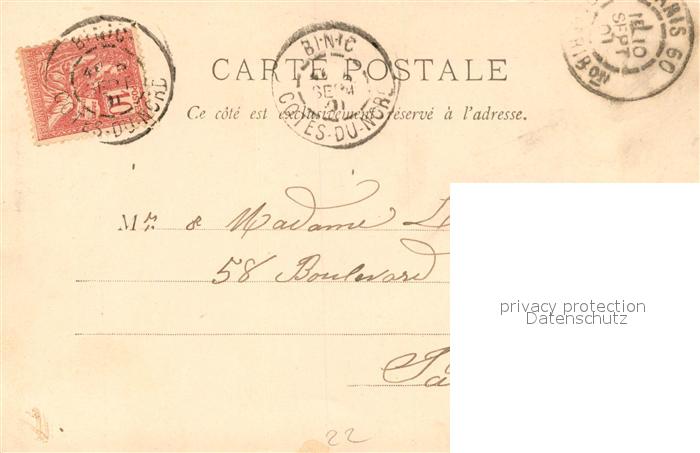 BINIC
CÔTES-DU-NORD
BINIC
SEPT
01
CÔTES-DU-NORD
PARIS 60
1E 10
SEPT
01
CARTE POSTALE
Ce côté est exclusivement réservé à l'adresse.
Mr & Madame L
58 Boulevard
Pa
privacy protection
Datenschutz
22